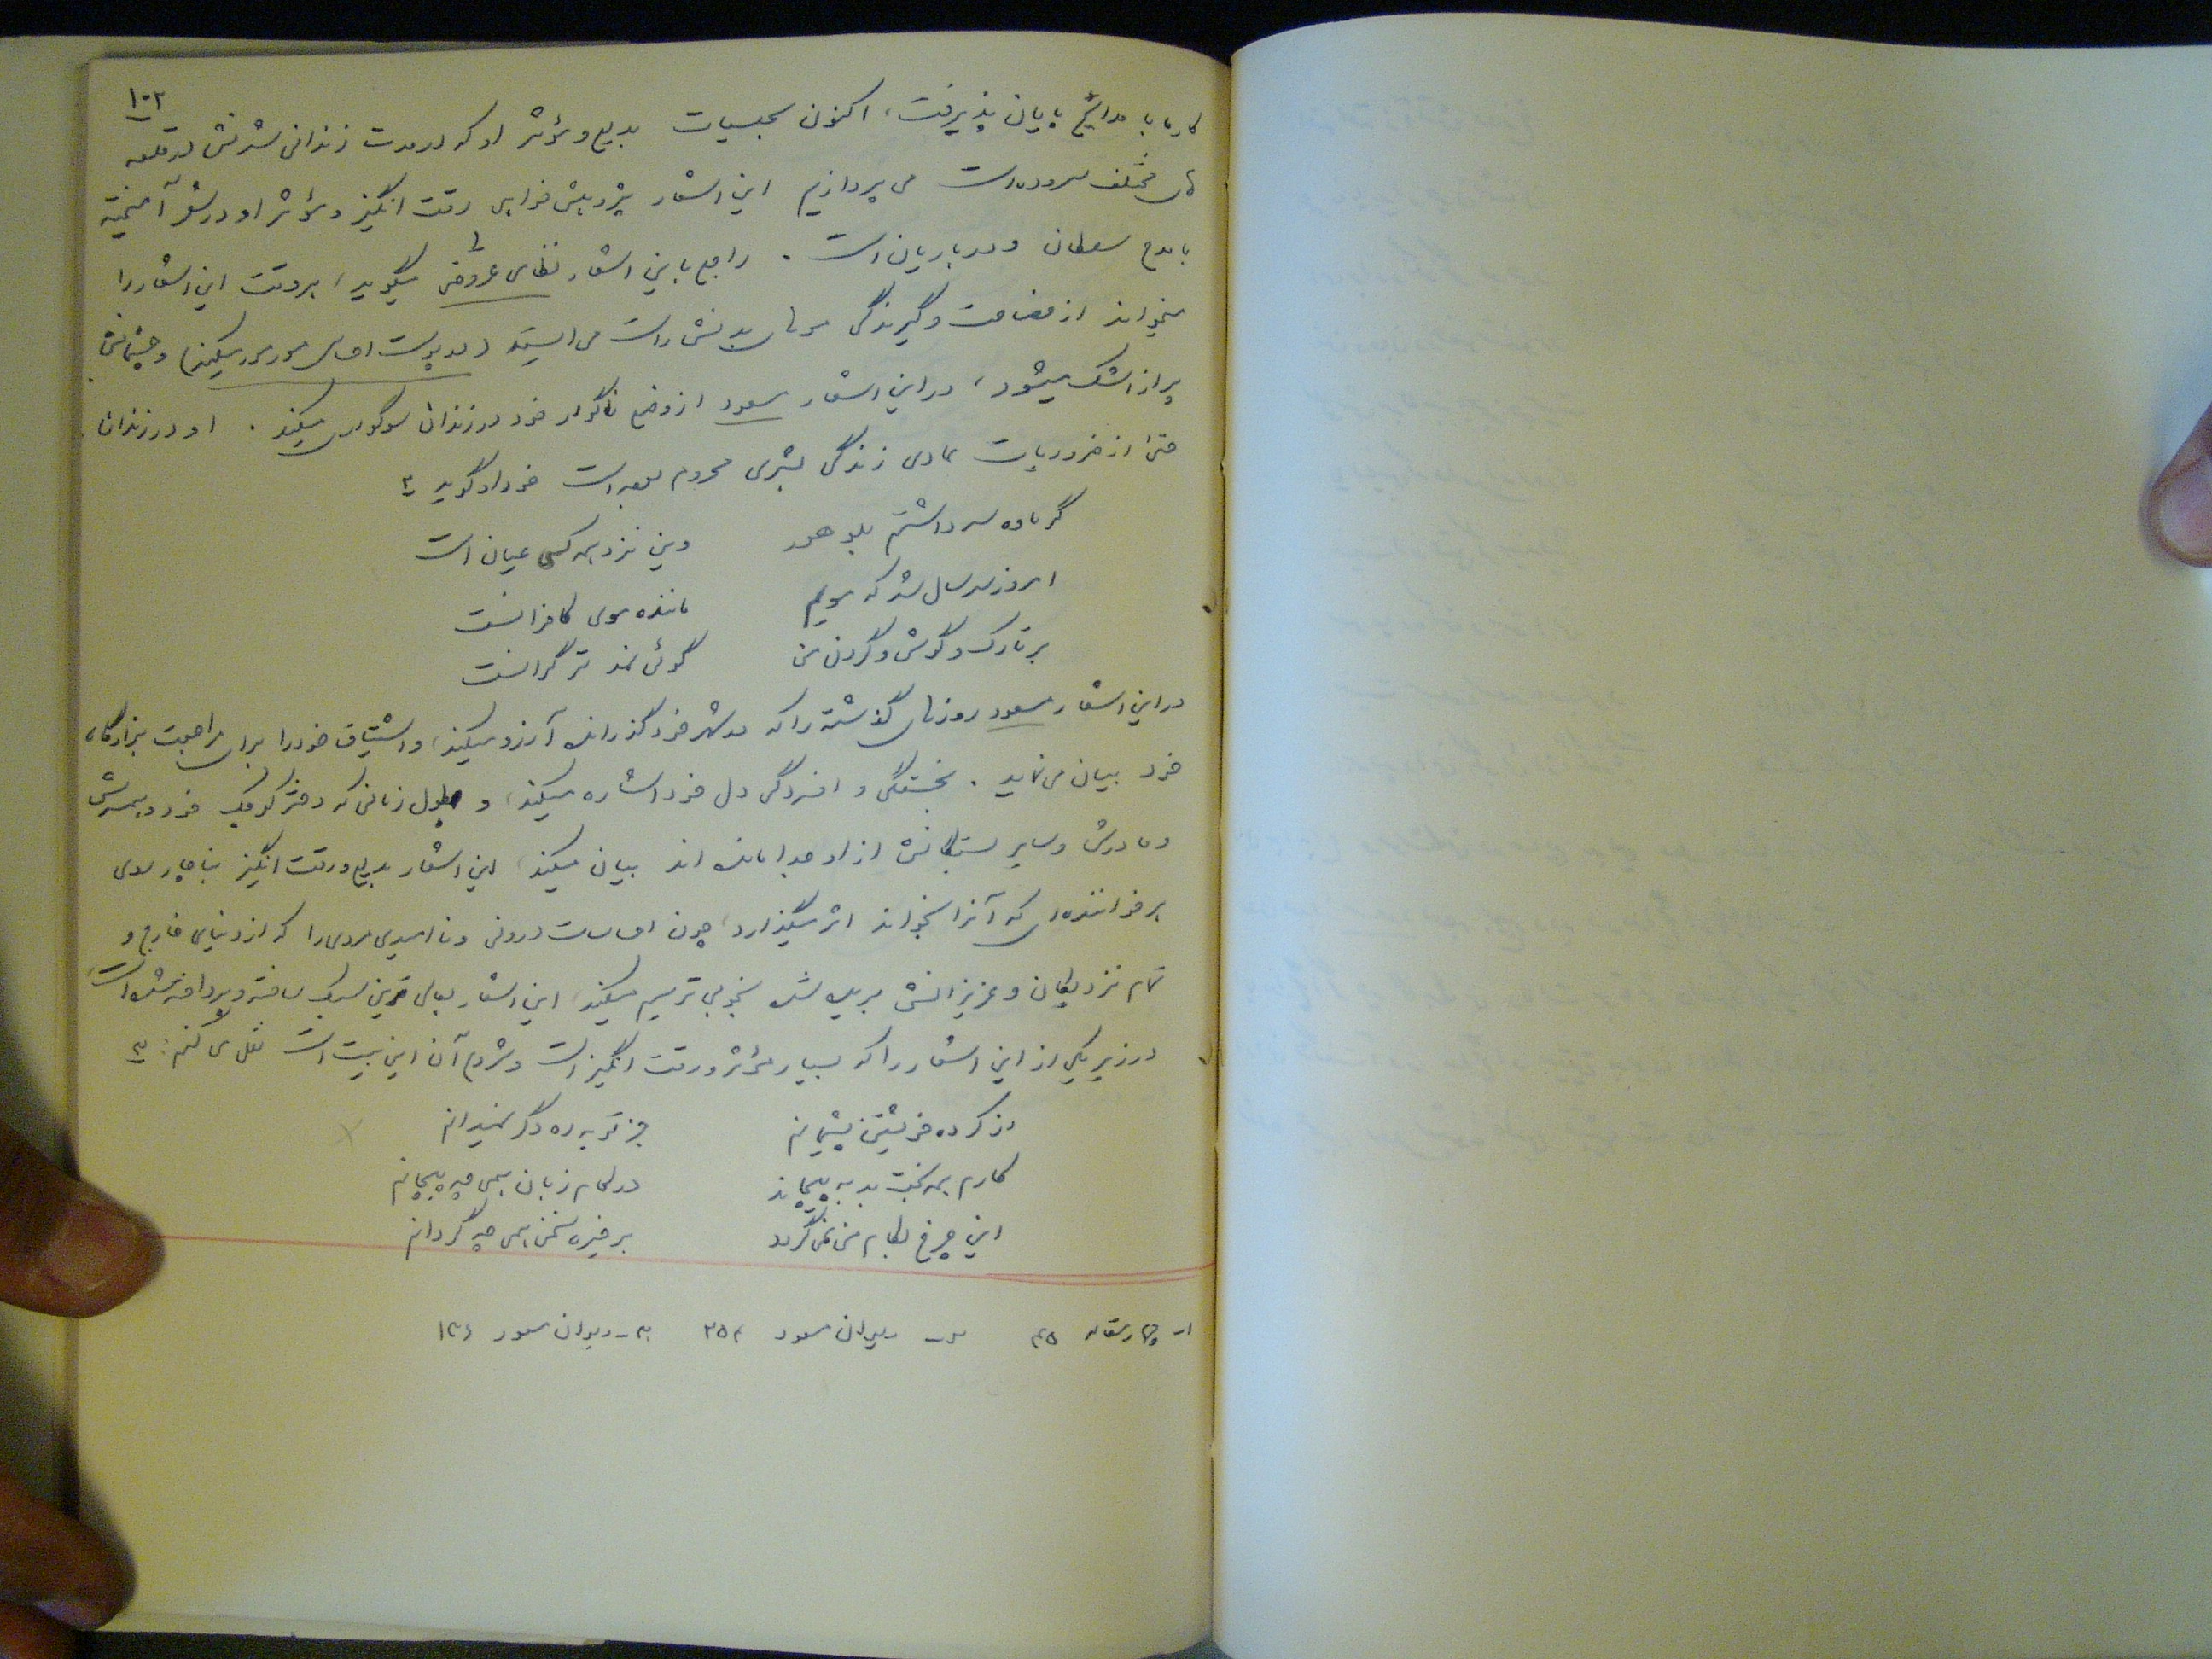 ۱۰۲
کار ما با مدائح پایان پذیرفت، اکنون بحبسیات بدیع و مؤثر او که در مدت زندانی شدنش در قلعه
های مختلف سروده است می پردازیم این اشعار رقت انگیز و مؤثر او در شعر آمیخته
با مدح سلطان و درباریان است. راجع باین اشعار نظامی عروضی میگوید، ۱ بروقت این اشعار را
میخواند از فصاحت و گیرندگی موهای بدنش راست می ایستد (در پوست احساس مور مور میکند) و چشمانش
پر از اشک میشود، در این اشعار مسعود از وضع ناگوار خود در زندان سوگواری میکند. او در زندان
حتی از ضروریات عادی زندگی بشری محروم بوده است خود او گوید ۲
گر ماوه سه داشتم بلوهور وین نزد همه کسی عیان است
امروز سه سال شد که مویم ماننده موی کافرانست
بر تارک و گوش و گردن من گوئی نمد تر گرانست
در این اشعار مسعود روزهای گذشته را که در شهر خود گذرانده آرزو میکند، و اشتیاق خود را برای مراجعت بزادگاه
خود بیان می نماید. بخستگی و افسردگی دل خود اشاره میکند، و بطول زمانی که دختر کوچک خود و پسرش
و مادرش و سایر بستگانش از او جدا مانده اند بیان میکند، این اشعار بدیع و رقت انگیز بناچار روی
هر خواننده ای که آنرا بخواند اثر میگذارد، چون احساسات درونی و نا امیدی مردی را که از دنیای خارج و
تمام نزدیکان و عزیزانش بریده شده بخوبی ترسیم میکند، این اشعار بعالی ترین سبک ساخته و پرداخته شده است،
در زیر یکی از این اشعار را که بسیار مؤثر و رقت انگیز است و شروع آن این بیت است نقل می کنم: ۳
از کرده خویشتن پشیمانم جز توبه ره دگر نمیدانم
کارم همه بخت بد به پیچاند در کام زبان همی چه پیچانم
این چرخ بکام من نمی گردد بر خیره سخن همی چه گردانم
۱- چهار مقاله ۴۵ ۲- دیوان مسعود ۲۵۴ ۳- دیوان مسعود ۱۳۶